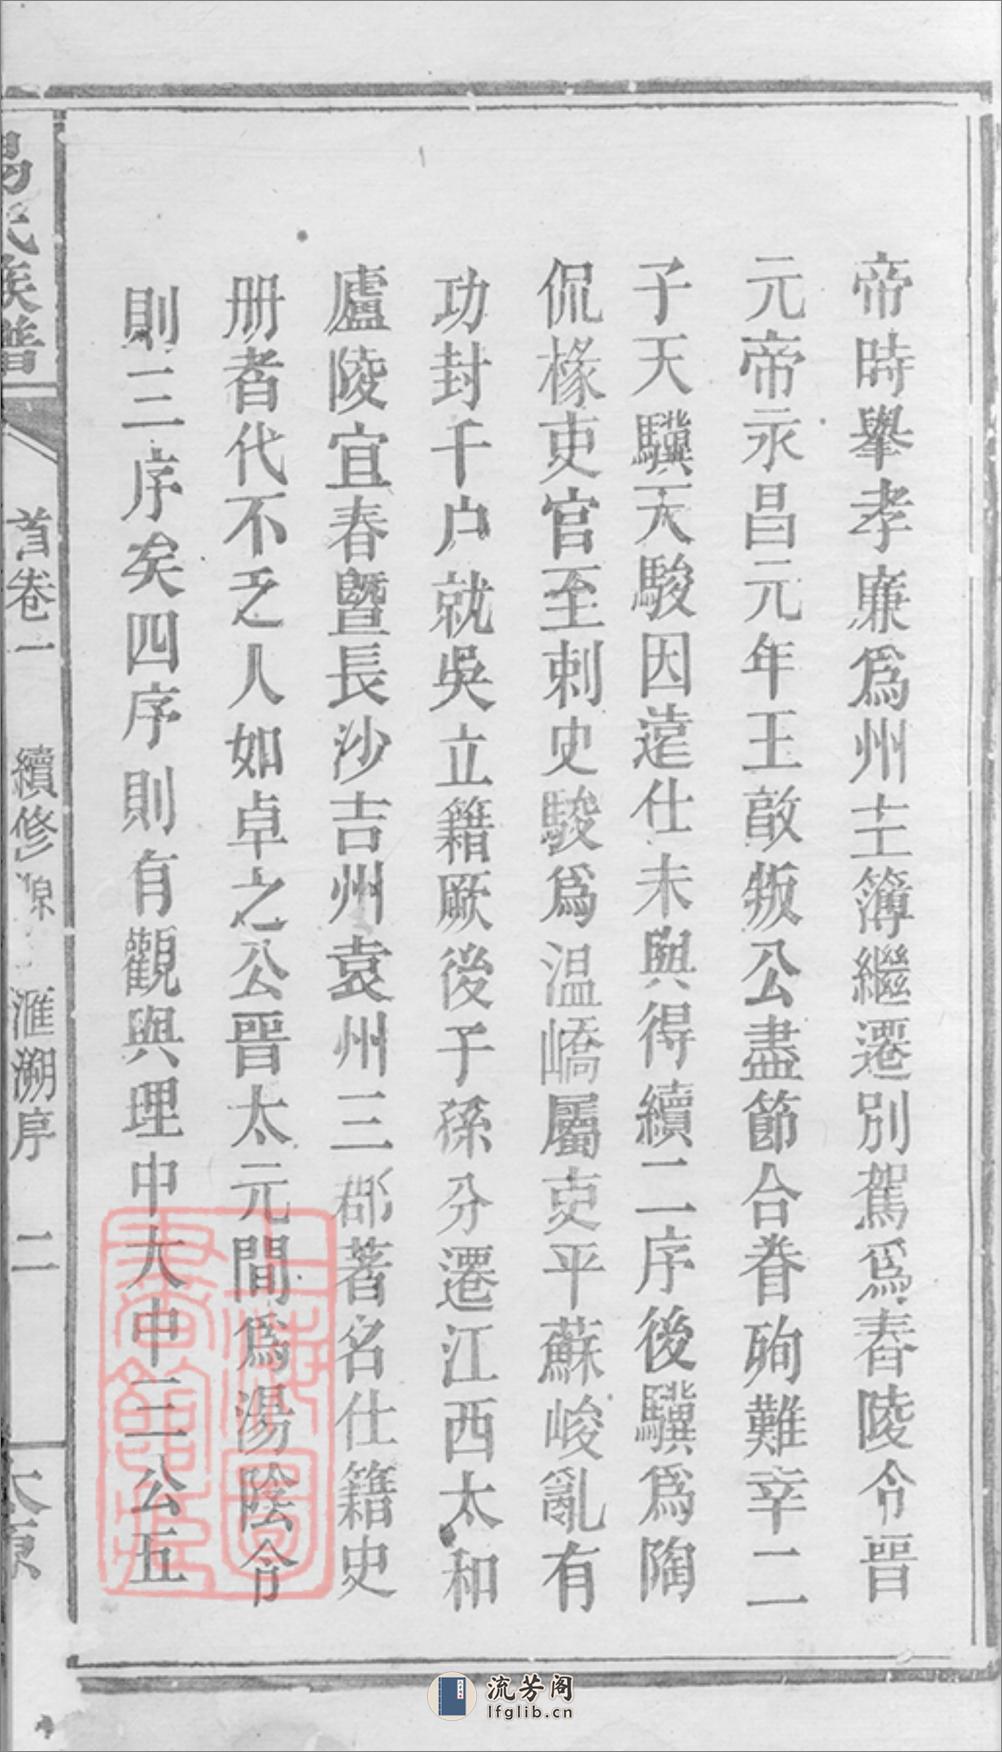 帝時舉孝廉爲州主簿繼遷別駕爲舂陵令晉
元帝永昌元年王敦叛公盡節合眷殉難幸二
子天驥天駿因遠仕未與得續二序後驥爲陶
侃椽吏官至刺史駿爲温嶠屬吏平蘇峻亂有
功封千户就吳立籍厥後子孫分遷江西太和
廬陵宜春暨長沙吉州袁州三郡著名仕籍史
册者代不乏人如卓之公晋太元間爲湯陰令
則三序矣四序則有觀與理中大中三公五
易氏族譜
首卷一
續修源
滙溯序
二
太原
上海圖書館藏
流芳阁
lfglib.cn